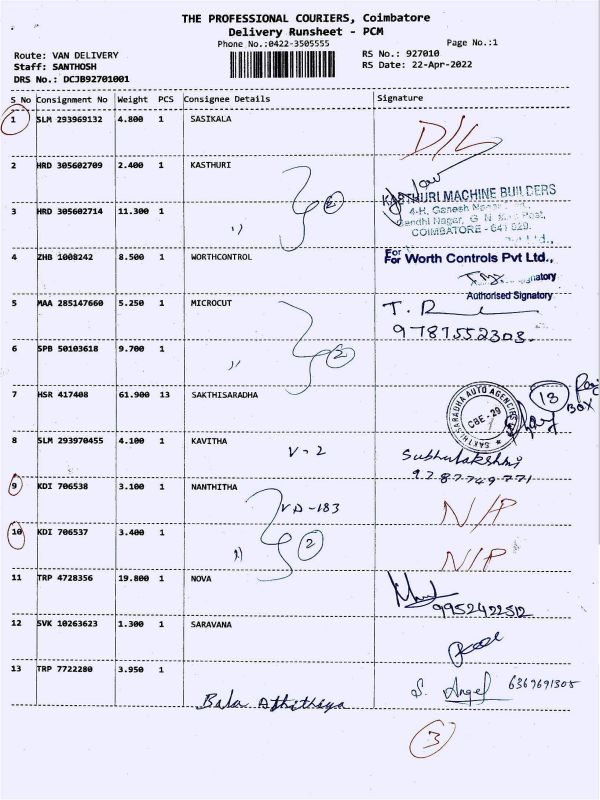 THE PROFESSIONAL COURIERS, Coimbatore
Delivery Runsheet - PCM
Phone No.:0422-3505555
Page No.:1
Route: VAN DELIVERY
RS No.: 927010
Staff: SANTHOSH
RS Date: 22-Apr-2022
DRS No.: DCJB92701001
S No Consignment No Weight PCS Consignee Details Signature
1 SLM 293969132 4.800 1 SASIKALA D/L
2 HRD 305602709 2.400 1 KASTHURI 2
KASTHURI MACHINE BUILDERS
3 HRD 305602714 11.300 1 ,,
4-H, Ganesh
Gandhi Nagar, G. N. Post,
COIMBATORE - 641 029.
4 ZHB 1008242 8.500 1 WORTHCONTROL
For Worth Controls Pvt Ltd.,
Authorised Signatory
5 MAA 285147660 5.250 1 MICROCUT
9787552303.
6 SPB 50103618 9.700 1 ,, 2
7 HSR 417408 61.900 13 SAKTHISARADHA
SAKTHI SARADHA AUTO AGENCIES
CBE-29
13 BOX
8 SLM 293970455 4.100 1 KAVITHA
V-2
Subhulakshmi
9787749771
9 KDI 706538 3.100 1 NANTHITHA N/P
VD-183
10 KDI 706537 3.400 1 ,, 2 N/P
11 TRP 4728356 19.800 1 NOVA
9952422512
12 SVK 10263623 1.300 1 SARAVANA
13 TRP 7722280 3.950 1
S. Angel 6369691305
Bala Athithaya
3